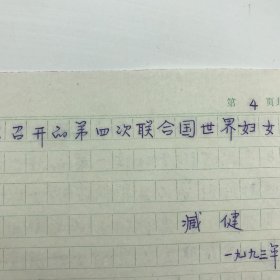 第 4 页
召开的第四次联合国世界妇女
臧健
一九九三年